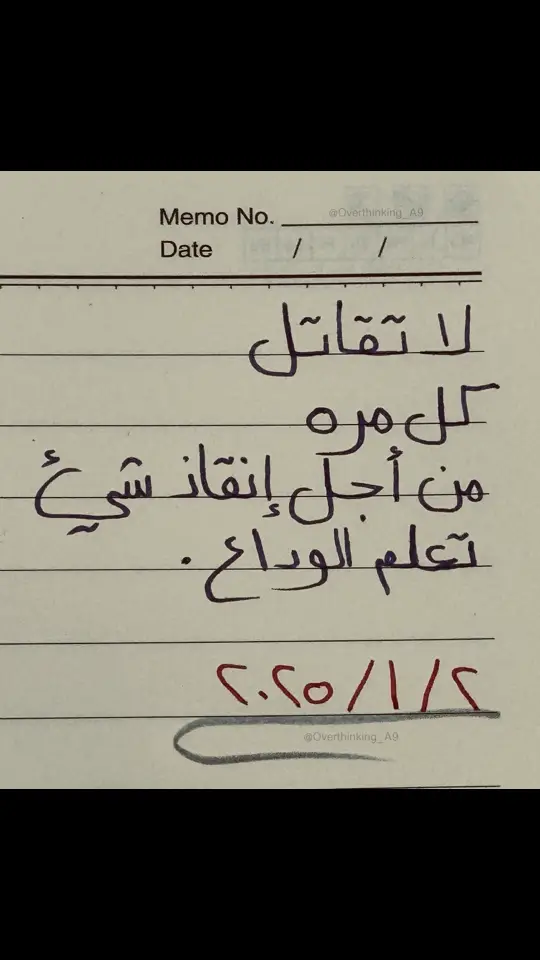 @Overthinking_A9
Memo No.
Date / /
لا تقاتل
كل مره
من أجل إنقاذ شيئ
تعلم الوداع.
٢٠٢٥/١/٢
@Overthinking_A9